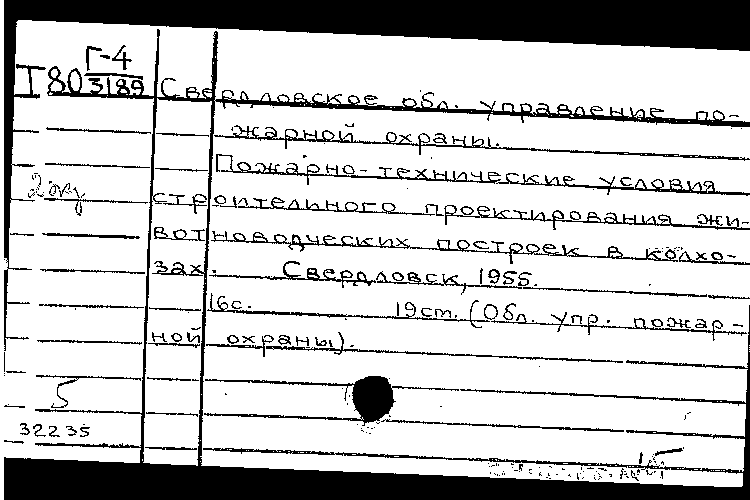 Г-4
Т80 3189 Свердловское обл. управление по-
жарной охраны.
Пожарно-технические условия
2 экз
строительного проектирования жи-
вотноводческих построек в колхо-
зах. Свердловск, 1955.
16с. 19см. (Обл. упр. пожар-
ной охраны).
5
32235